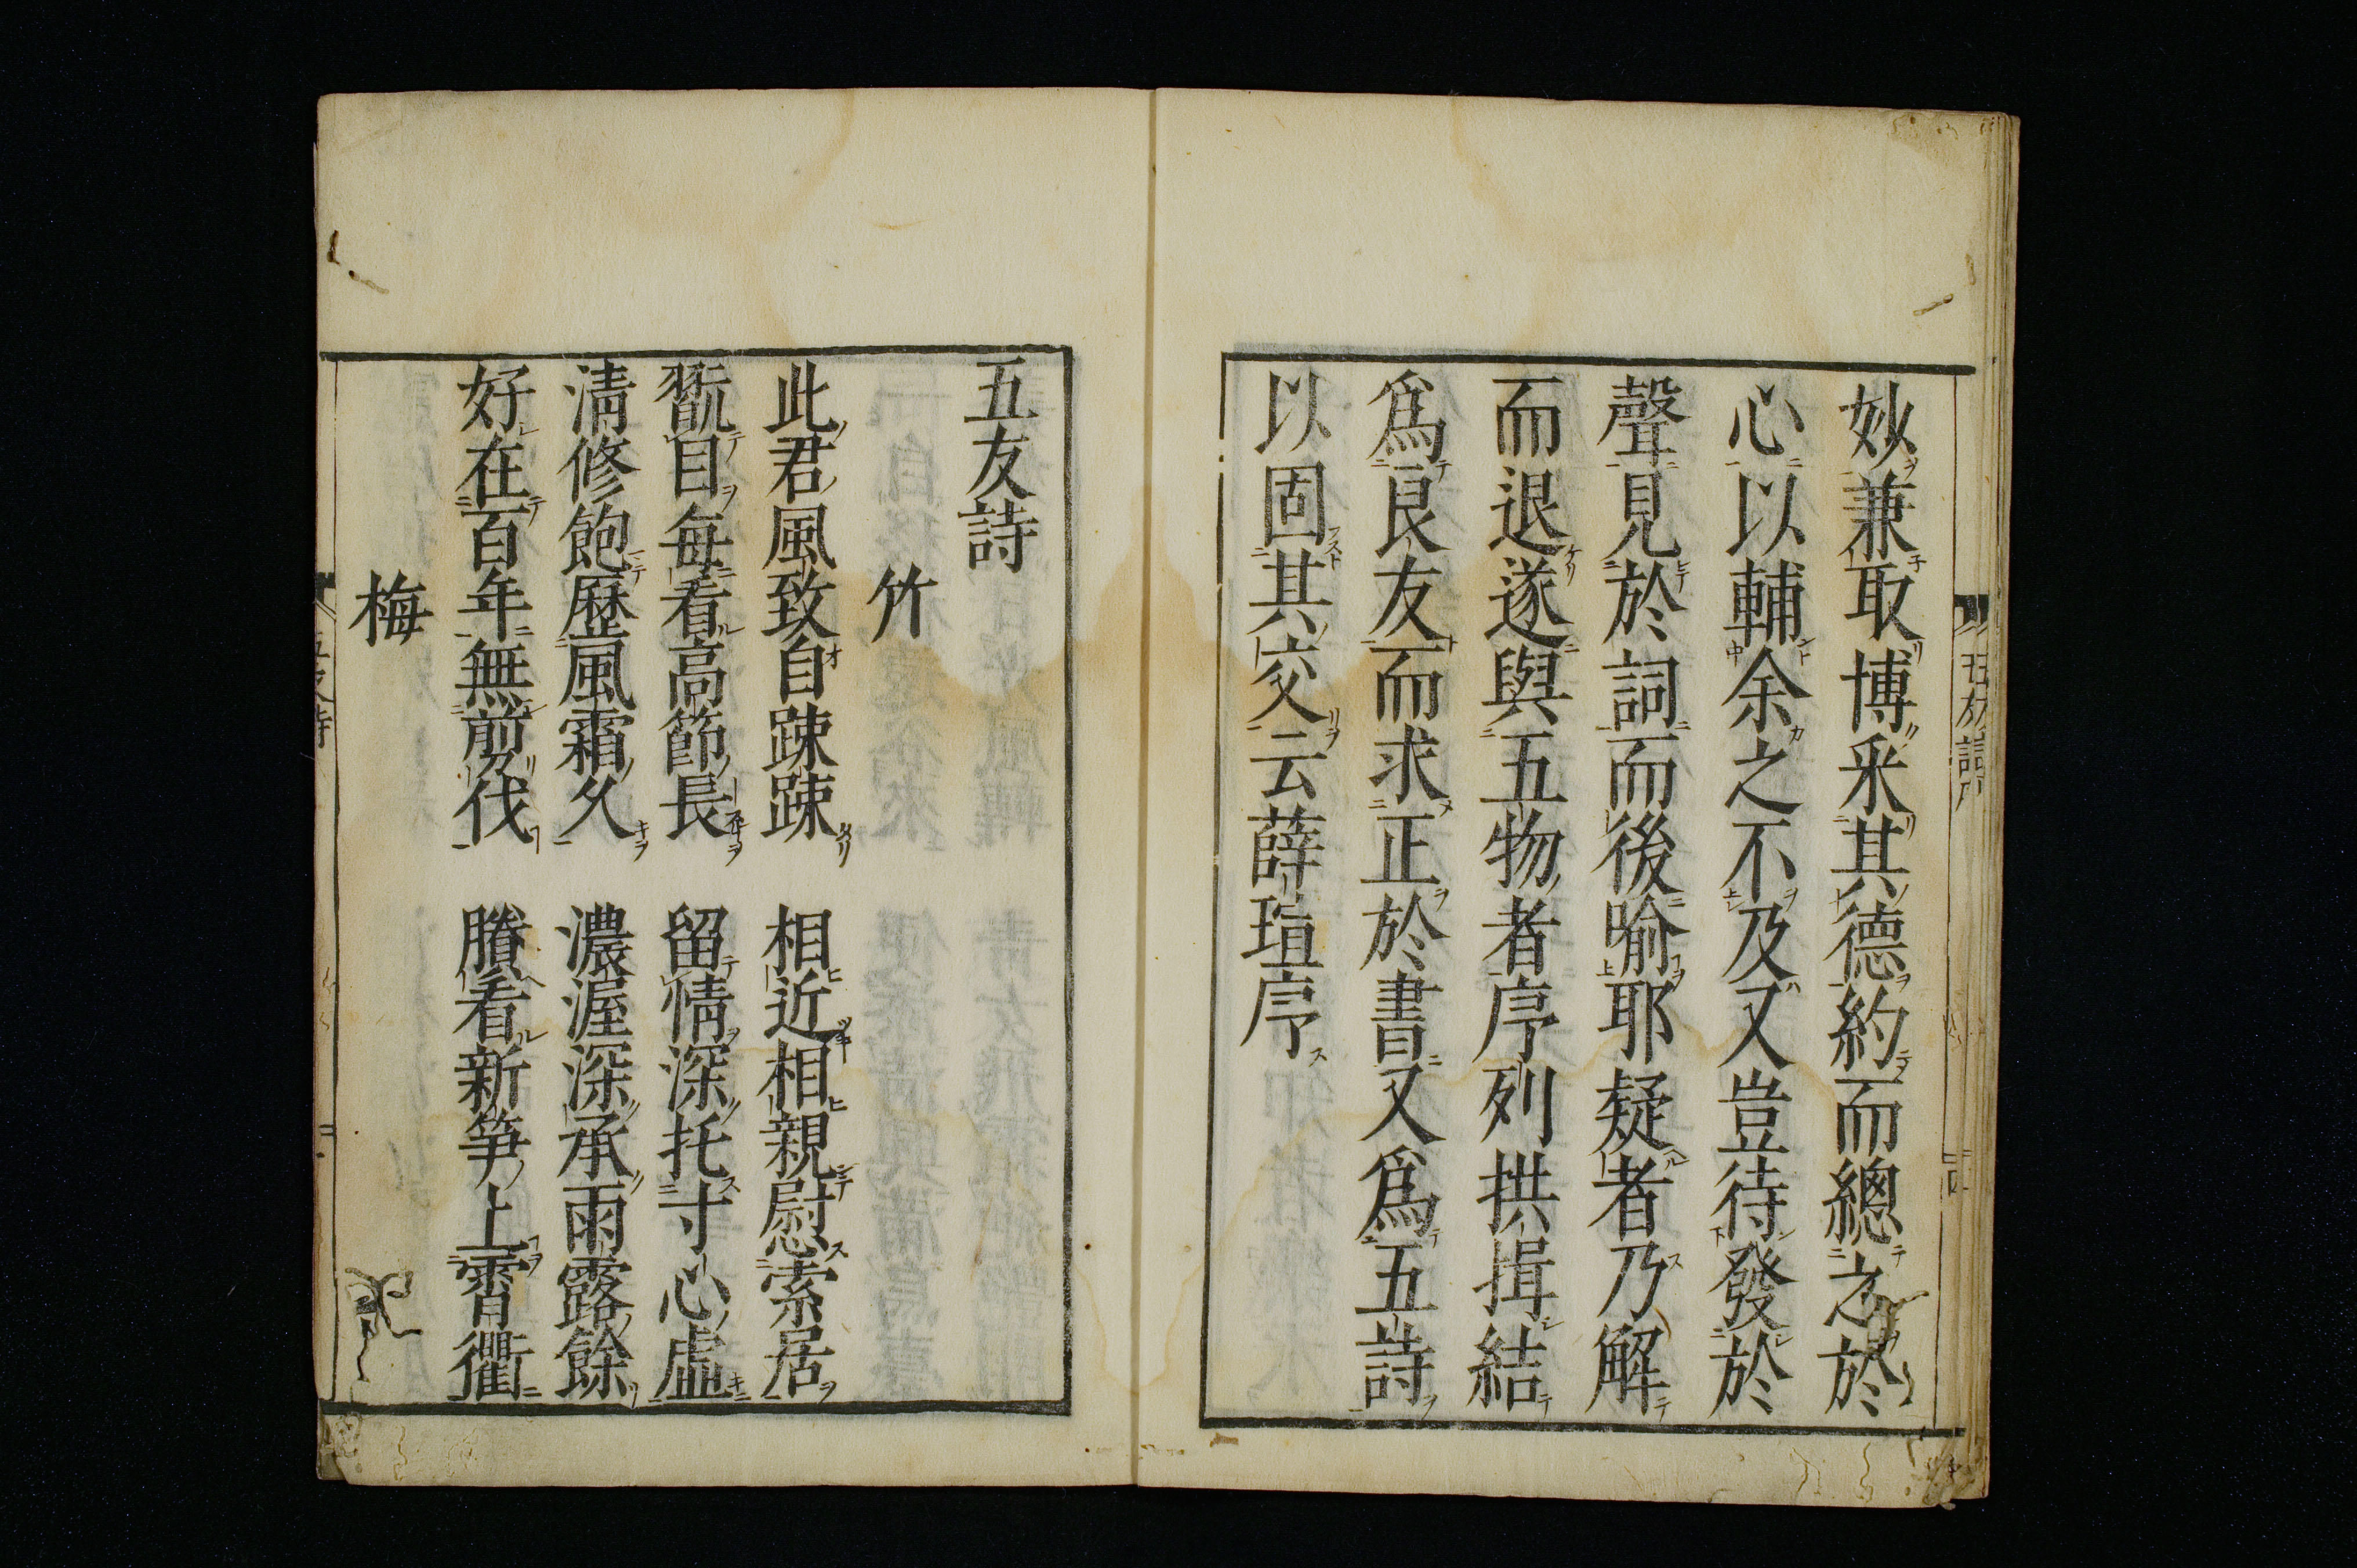 妙兼取博采其德約而總之於
心以輔余之不及又豈待發於
聲見於詞而後喻耶疑者乃解
而退遂與五物者序列拱揖結
爲良友而求正於書又爲五詩
以固其交云薛瑄序
五友詩
竹
此君風致自踈踈 相近相親慰索居
翫目每看高節長 留情深托寸心虛
淸修飽歷風霜久 濃渥深承雨露餘
好在百年無剪伐 賸看新笋上霄衢
梅